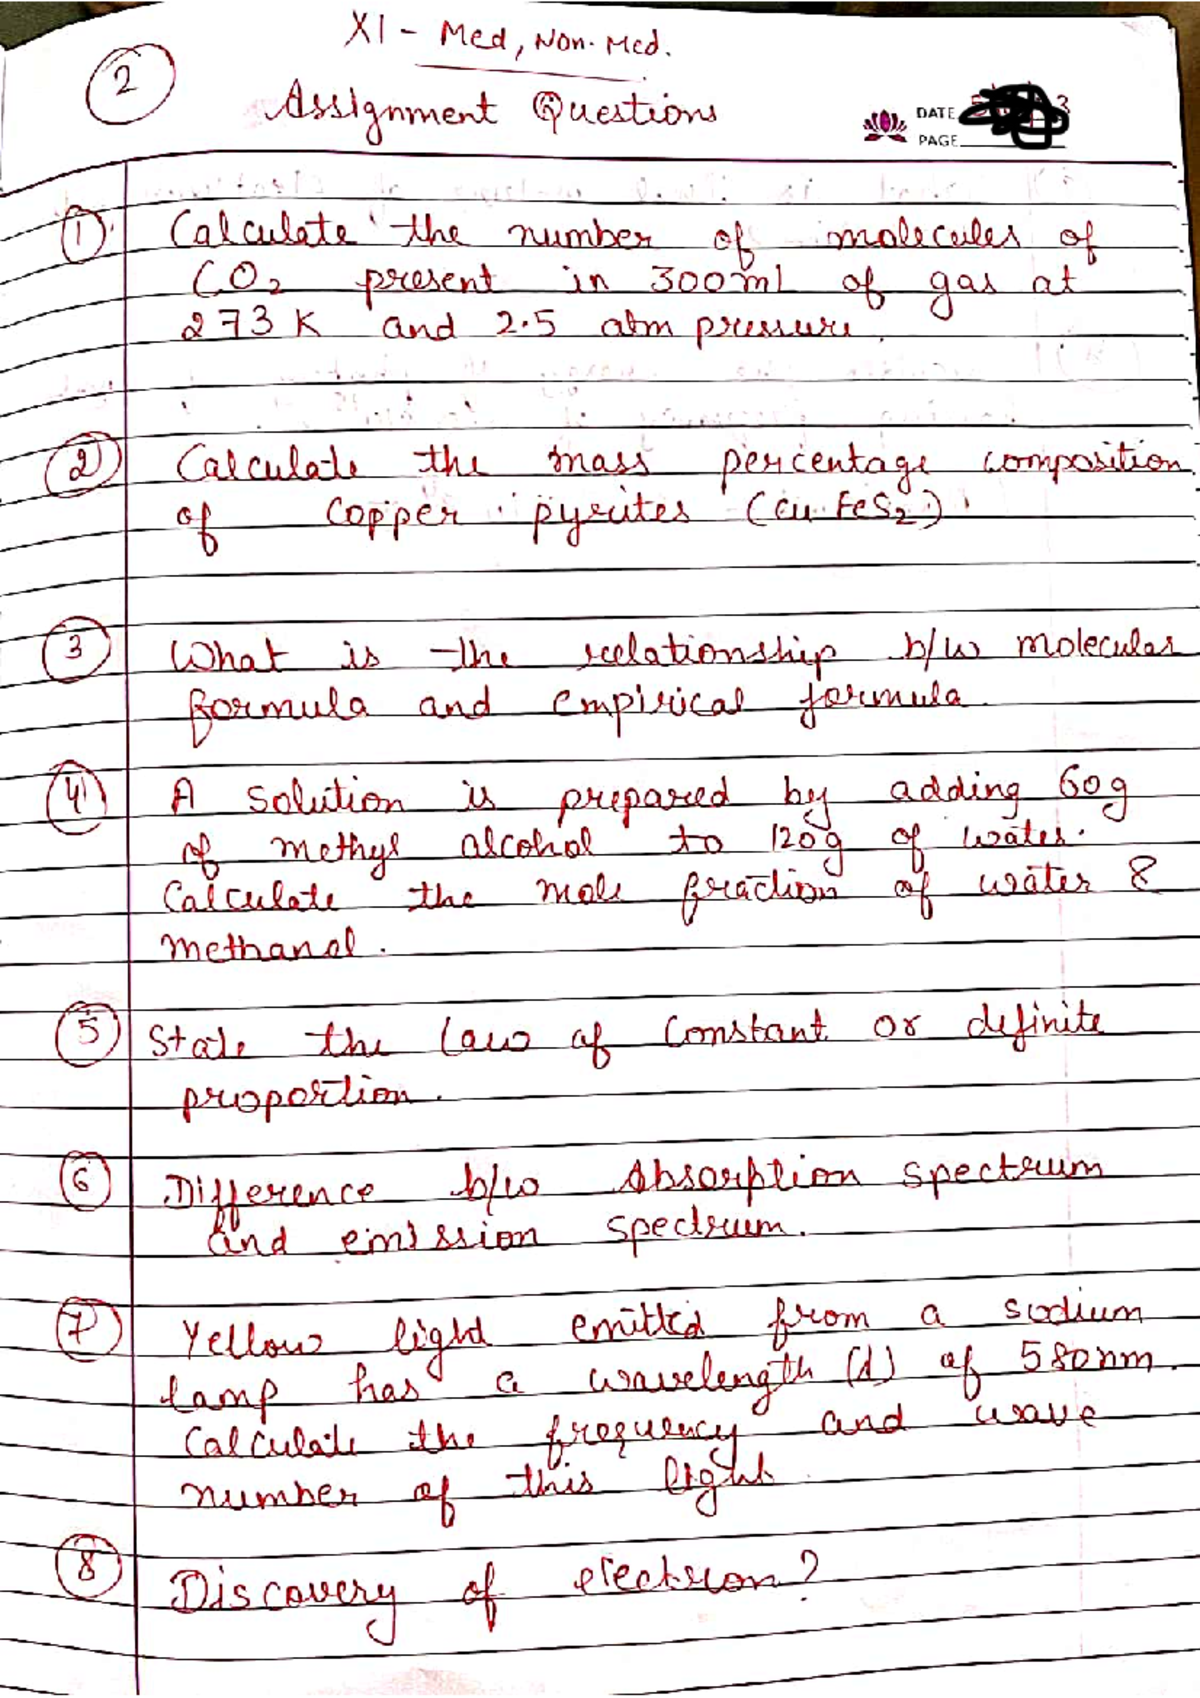 XI - Med, Non. Med.
2
Assignment Questions
DATE
PAGE
1 Calculate the number of molecules of
CO2 present in 300ml of gas at
273 K and 2.5 atm pressure.
2 Calculate the mass percentage composition
of Copper pyrites (Cu FeS2).
3 What is the relationship b/w molecular
formula and empirical formula.
4 A solution is prepared by adding 60g
of methyl alcohol to 120g of water.
Calculate the mole fraction of water &
methanol.
5 State the Law of Constant or definite
proportion.
6 Difference b/w Absorption spectrum
and emission spectrum.
7 Yellow light emitted from a sodium
lamp has a wavelength (λ) of 580nm.
Calculate the frequency and wave
number of this light.
8 Discovery of electron?